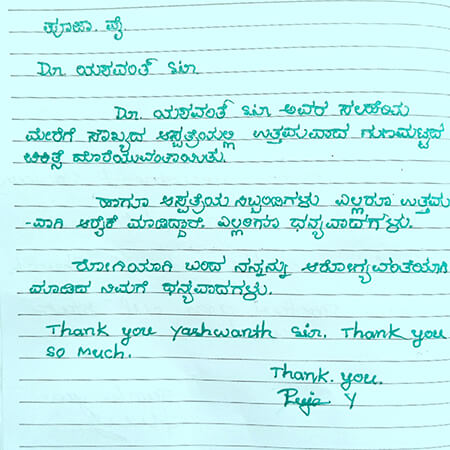 ಪೂಜಾ. ವೈ.
Dr. ಯಶವಂತ್ Sir
Dr. ಯಶವಂತ್ Sir ಅವರ ಸಲಹೆಯ
ಮೇರೆಗೆ ಸೌಖ್ಯದ ಆಸ್ಪತ್ರೆಯಲ್ಲಿ ಉತ್ತಮವಾದ ಗುಣಮಟ್ಟದ
ಚಿಕಿತ್ಸೆ ದೊರೆಯುವಂತಾಯಿತು.
ಹಾಗೂ ಆಸ್ಪತ್ರೆಯ ಸಿಬ್ಬಂದಿಗಳು ಎಲ್ಲರೂ ಉತ್ತಮ
-ವಾಗಿ ಆರೈಕೆ ಮಾಡಿದ್ದಾರೆ. ಎಲ್ಲರಿಗೂ ಧನ್ಯವಾದಗಳು.
ರೋಗಿಯಾಗಿ ಬಂದ ನನ್ನನ್ನು ಆರೋಗ್ಯವಂತೆಯಾಗಿ
ಮಾಡಿದ ನಿಮಗೆ ಧನ್ಯವಾದಗಳು.
Thank you Yashwanth Sir. Thank you
so much.
Thank. you.
Puja Y